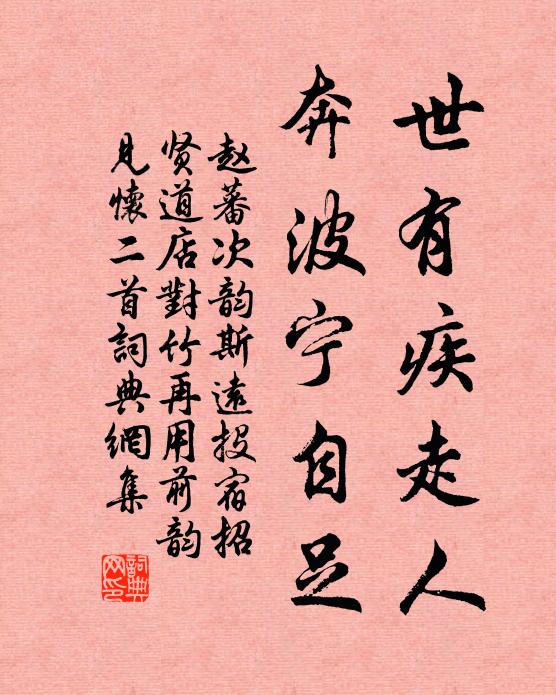 世有疾走人
奔波宁自足
赵蕃次韵斯遠投宿招
贤道店對竹再用前韵
見懷二首詞典網集
詞典
网印